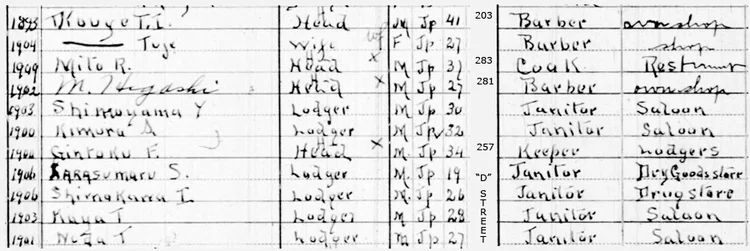 1893 Kouye T.I. Head M Jp 41 203 Barber own shop
1904 Tuje Wife F Jp 27 Barber shop
1909 Mito R. Head x M Jp 37 283 Cook Restrunt
1902 M. Higashi Head x M Jp 27 281 Barber own shop
1903 Shimoyama Y Lodger M Jp 30 Janitor Saloon
1900 Kimora A Lodger M Jp 32 Janitor Saloon
1900 Gintoku F. Head x M Jp 34 257 Keeper Lodgers
1906 Karasumaru S. Lodger M Jp 19 "D" Janitor Dry Goods store
1906 Shimakawa I Lodger M Jp 26 STREET Janitor Drug store
1903 Kaya T Lodger M Jp 28 Janitor Saloon
1901 Noza T Lodger M Jp 27 Janitor Saloon